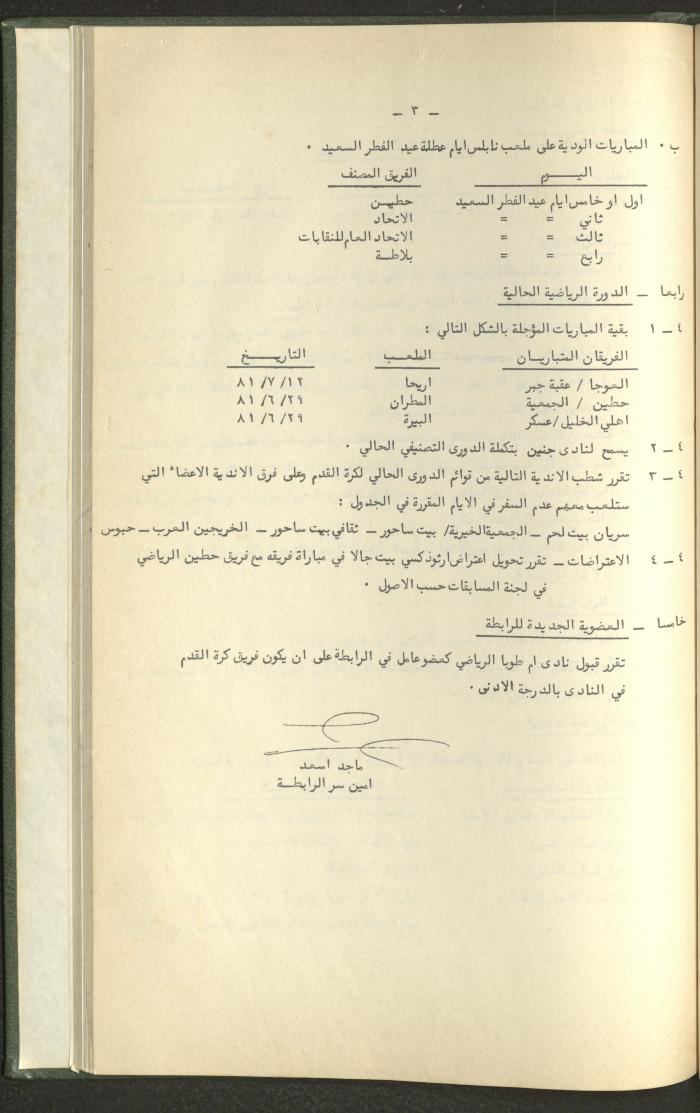 – ٣ –
ب ٠ المباريات الودية على ملعب نابلس ايام عطلة عيد الفطر السعيد ٠
اليــــــوم الفريق المصنف
اول او خامس ايام عيد الفطر السعيد حطيـن
ثاني = = الاتحاد
ثالث = = الاتحاد العام للنقابات
رابع = = بلاطـة
رابعا – الدورة الرياضية الحالية
٤ – ١ بقية المباريات المؤجلة بالشكل التالي :
الفريقان المتباريـــان الملعـــب التاريــــخ
العوجا / عقبة جبر اريحا ١٢/ ٧/ ٨١
حطين / الجمعية المطران ٢٩/ ٦/ ٨١
اهلي الخليل/عسكر البيرة ٢٩/ ٦/ ٨١
٤ – ٢ يسمح لنادى جنين بتكملة الدورى التصنيفي الحالي ٠
٤ – ٣ تقرر شطب الاندية التالية من قوائم الدورى الحالي لكرة القدم وعلى فرق الاندية الاعضاء التي
ستلعب معهم عدم السفر في الايام المقررة في الجدول :
سريان بيت لحم – الجمعية الخيرية/ بيت ساحور – ثقافي بيت ساحور – الخريجين العرب – حبوس
٤ – ٤ الاعتراضات – تقرر تحويل اعتراض ارثوذكسي بيت جالا في مباراة فريقه مع فريق حطين الرياضي
في لجنة المسابقات حسب الاصول ٠
خامسا – العضوية الجديدة للرابطة
تقرر قبول نادى ام طوبا الرياضي كعضو عامل في الرابطة على ان يكون فريق كرة القدم
في النادى بالدرجة الادنى ٠
ماجد اسعد
امين سر الرابطــة